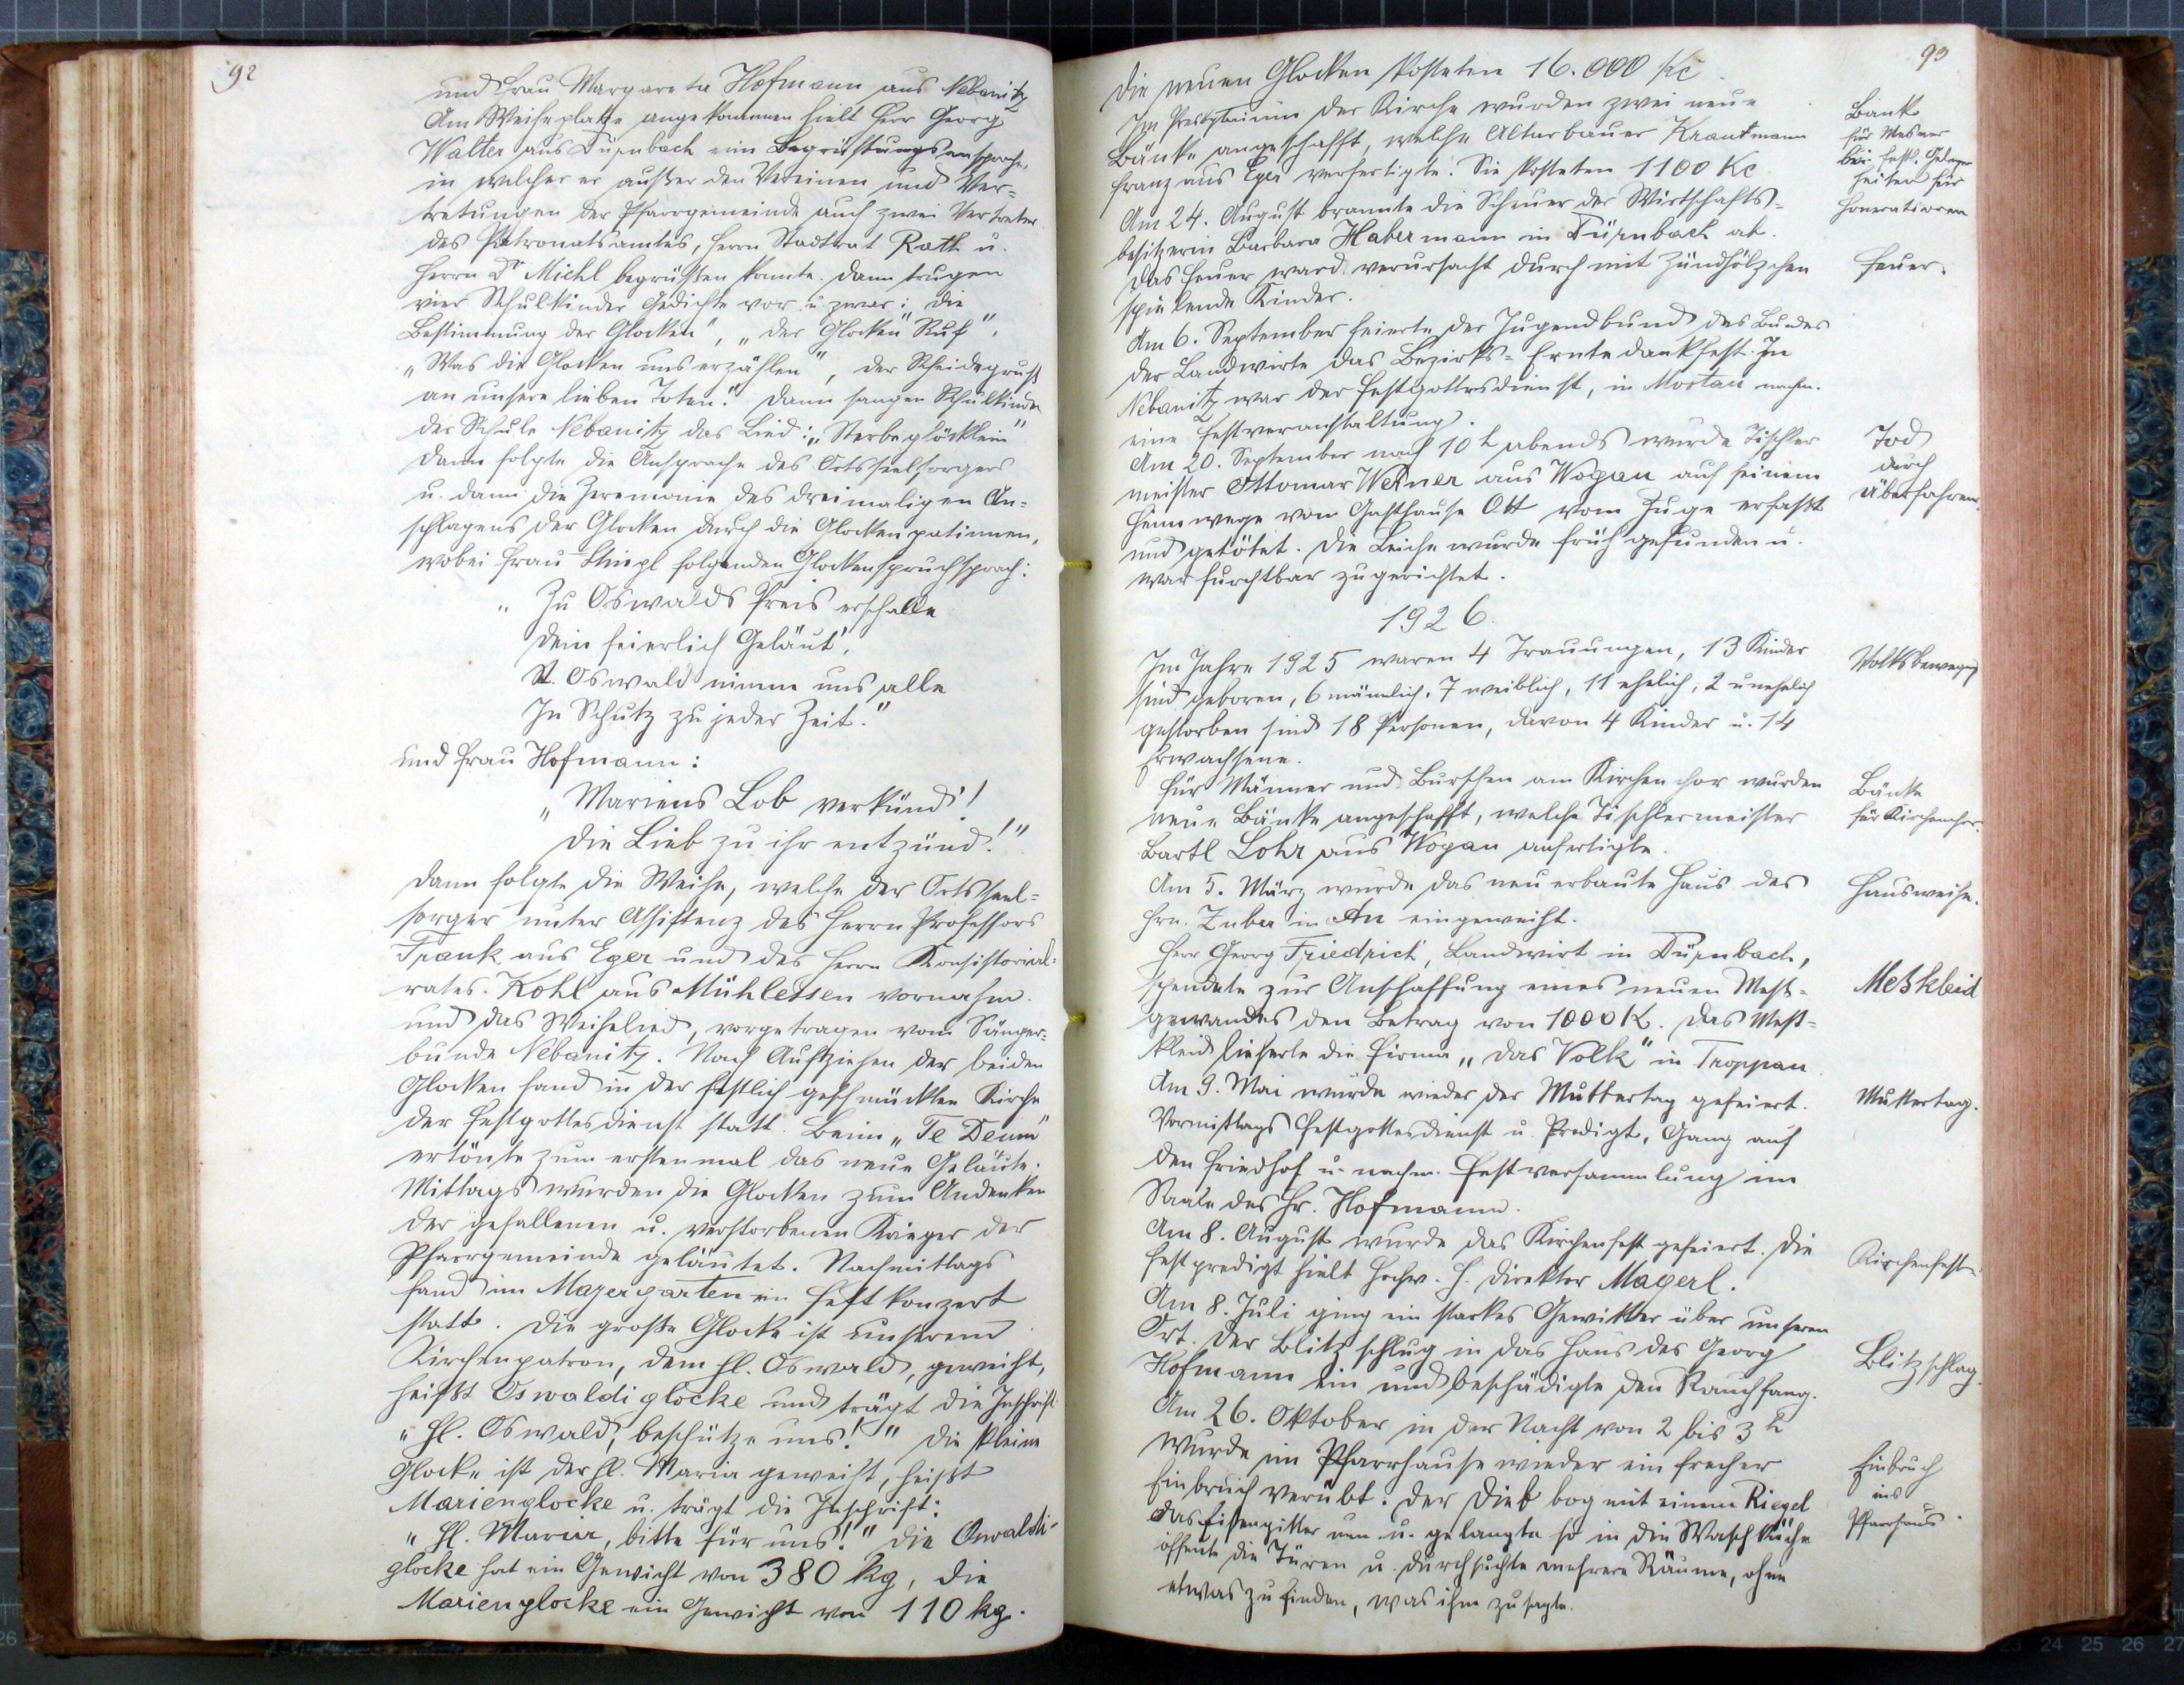 92
und Frau Margareta Hofmann aus Nebanitz
Am Weiheplatze angekommen hielt Herr Georg
Walter aus Dürnbach eine Begrüßungsansprache,
in welcher er außer den Vereinen und Ver-
tretungen der Pfarrgemeinde auch zwei Vertreter
des Patronatsamtes, Herrn Stadtrat Rath u.
Herrn Dr Michl begrüßen konnte. Dann trugen
vier Schulkinder Gedichte vor u. zwar: die
Bestimmung der Glocken", „der Glocken Ruf",
„Was die Glocken uns erzählen", der Scheidegruß
an unsere lieben Toten." Dann sangen Schulkinder
der Schule Nebanitz das Lied: „Sterbeglöcklein"
Dann folgte die Ansprache des Ortsseelsorgers
u. dann die Zeremonie des dreimaligen An-
schlagens der Glocken durch die Glockenpatinnen,
wobei Frau Stingl folgenden Glockenspruch sprach:
„Zu Oswalds Preis erschalle
Dein feierlich Geläut',
St. Oswald nimm uns alle
In Schutz zu jeder Zeit."
und Frau Hofmann:
„Mariens Lob verkünd'!
Die Lieb zu ihr entzünd'!"
Dann folgte die Weihe, welche der Ortsseel-
sorger unter Assistenz des Herrn Professors
Frank aus Eger und des Herrn Konsistorial-
rates Kohl aus Mühlessen vornahm
und das Weihelied, vorgetragen vom Sänger-
bunde Nebanitz. Nach Aufziehen der beiden
Glocken fand in der festlich geschmückten Kirche
der Festgottesdienst statt. Beim „Te Deum"
ertönte zum erstenmal das neue Geläute.
Mittags wurden die Glocken zum Andenken
der gefallenen u. verstorbenen Krieger der
Pfarrgemeinde geläutet. Nachmittags
fand im Mayergarten ein Festkonzert
statt. Die große Glocke ist unserem
Kirchenpatron, dem hl. Oswald, geweiht,
heißt Oswaldiglocke und trägt die Inschrift
„Hl. Oswald, beschütze uns!" Die kleine
Glocke ist der hl. Maria geweiht, heißt
Marienglocke u. trägt die Inschrift:
„Hl. Maria, bitte für uns!" Die Oswaldi-
glocke hat ein Gewicht von 380 kg, die
Marienglocke ein Gewicht von 110 kg.
93
Die neuen Glocken kosteten 16.000 Kč.
Im Presbyterium der Kirche wurden zwei neue
Bänke angeschafft, welche Altarbauer Krautmann
Franz aus Eger verfertigte. Sie kosteten 1100 Kc
Bank
für Mesner
bei festl. Gelegen
heiten für
Honoratioren
Am 24. August brannte die Scheuer der Wirtschafts-
besitzerin Barbara Habermann in Dürnbach ab.
Das Feuer ward verursacht durch mit Zündhölzchen
spielende Kinder.
Feuer.
Am 6. September feierte der Jugendbund des Bundes
der Landwirte das Bezirks-Erntedankfest. In
Nebanitz war der Festgottesdienst, in Mostau nachm.
eine Festveranstaltung.
Am 20. September nach 10 h abends wurde Tischler
meister Ottomar Werner aus Wogau auf seinem
Heimwege vom Gasthause Ott vom Zuge erfaßt
und getötet. Die Leiche wurde früh gefunden u.
war furchtbar zugerichtet.
Tod
durch
Überfahren.
1926.
Im Jahre 1925 waren 4 Trauungen, 13 Kinder
sind geboren, 6 männlich, 7 weiblich, 11 ehelich, 2 unehelich
gestorben sind 18 Personen, davon 4 Kinder u. 14
Erwachsene.
Volksbewegg
Für Männer und Burschen am Kirchenchor wurden
neue Bänke angeschafft, welche Tischlermeister
Bartl Lohr aus Wogau anfertigte.
Bänke
für Kirchenchor.
Am 5. März wurde das neu erbaute Haus des
Hrn. Zuber in Au eingeweiht.
Hausweihe.
Herr Georg Friedrich, Landwirt in Dürnbach,
spendete zur Anschaffung eines neuen Meß-
gewandes den Betrag von 1000 K. Das Meß-
kleid lieferte die Firma „das Volk" in Troppau.
Meßkleid
Am 9. Mai wurde wieder der Muttertag gefeiert.
Vormittags Festgottesdienst u. Predigt, Gang auf
den Friedhof u. nachm. Festversammlung im
Saale des Hr. Hofmann.
Muttertag.
Am 8. August wurde das Kirchenfest gefeiert. Die
Festpredigt hielt Hochw. H. Direktor Magerl.
Kirchenfest.
Am 8. Juli ging ein starkes Gewitter über unseren
Ort. Der Blitz schlug in das Haus des Georg
Hofmann ein und beschädigte den Rauchfang.
Blitzschlag.
Am 26. Oktober in der Nacht von 2 bis 3 h
wurde im Pfarrhause wieder ein frecher
Einbruch verübt. Der Dieb bog mit einem Riegel
das Eisengitter um u. gelangte so in die Waschküche
öffnete die Türen u. durchsuchte mehrere Räume, ohne
etwas zu finden, was ihm zusagte.
Einbruch
ins
Pfarrhaus.
26
23 24 25 26 27